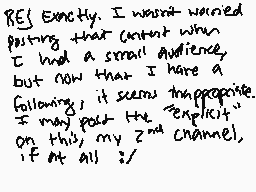 RE} Exactly. I wasn't worried
posting that content when
I had a small audience,
but now that I have a
following, it seems inappropriate.
I may post the "explicit"
on this, my 2nd channel,
if at all :/